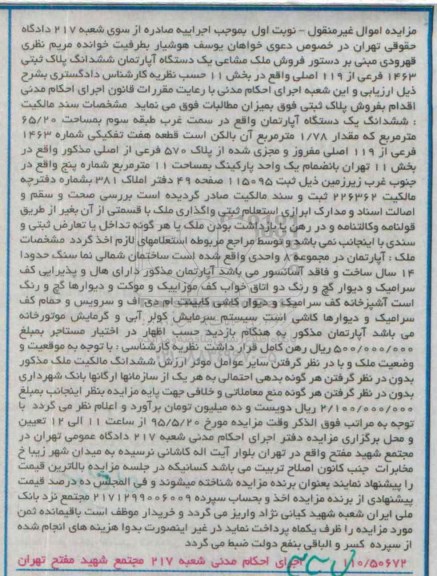 مزایده اموال غیرمنقول - نوبت اول بموجب اجراییه صادره از سوی شعبه ۲۱۷ دادگاه
حقوقی تهران در خصوص دعوی خواهان یوسف هوشیار بطرفیت خوانده مریم نظری
قهرودی مبنی بر دستور فروش ملک مشاعی یک دستگاه آپارتمان ششدانگ پلاک ثبتی
۱۴۶۳ فرعی از ۱۱۹ اصلی واقع در بخش ۱۱ حسب نظریه کارشناس دادگستری بشرح
ذیل ارزیابی و این شعبه اجرای احکام مدنی با رعایت مقررات قانون اجرای احکام مدنی
اقدام بفروش پلاک ثبتی فوق بمیزان مطالبات فوق می نماید مشخصات سند مالکیت
: ششدانگ یک دستگاه آپارتمان واقع در سمت غرب طبقه سوم بمساحت ۶۵/۲۰
مترمربع که مقدار ۱/۷۸ مترمربع آن بالکن است قطعه هفت تفکیکی شماره ۱۴۶۳
فرعی از ۱۱۹ اصلی مفروز و مجزی شده از پلاک ۵۷۰ فرعی از اصلی مذکور واقع در
بخش ۱۱ تهران بانضمام یک واحد پارکینگ بمساحت ۱۱ مترمربع شماره پنج واقع در
جنوب غرب زیرزمین ذیل ثبت ۱۱۵۰۹۵ صفحه ۴۹ دفتر املاک ۳۸۱ بشماره دفترچه
مالکیت ۲۲۶۳۶۲ ثبت و سند مالکیت صادر گردیده است بررسی صحت و سقم و
اصالت اسناد و مدارک ابرازی استعلام ثبتی واگذاری ملک یا قسمتی از آن بغیر از طریق
قولنامه وکالتنامه و در رهن یا بازداشت بودن ملک یا هر گونه تداخل یا تعارض ثبتی و
سندی با اینجانب نمی باشد و توسط مراجع مربوطه استعلامهای لازم اخذ گردد مشخصات
ملک : آپارتمان در مجموعه ۸ واحدی واقع شده است ساختمان شمالی نما سنگ حدودا
۱۴ سال ساخت و فاقد آسانسور می باشد آپارتمان مذکور دارای هال و پذیرایی کف
سرامیک و دیوار گچ و رنگ دو اتاق خواب کف موزاییک و موکت و دیوارها گچ و رنگ
است آشپزخانه کف سرامیک و دیوار کاشی کابینت ام دی اف و سرویس و حمام کف
سرامیک و دیوارها کاشی است سیستم سرمایش کولر آبی و گرمایش موتورخانه
می باشد آپارتمان مذکور به هنگام بازدید حسب اظهار در اختیار مستاجر بمبلغ
۵۰۰/۰۰۰/۰۰۰ ریال رهن کامل قرار داشت نظریه کارشناسی : با توجه به موقعیت و
وضعیت ملک و با در نظر گرفتن سایر عوامل موثر ارزش ششدانگ مالکیت ملک مذکور
بدون در نظر گرفتن هر گونه بدهی احتمالی به هر یک از سازمانها ارگانها بانک شهرداری
بدون در نظر گرفتن هر گونه منع معاملاتی و خلافی جهت پایه مزایده بنظر اینجانب بمبلغ
۲/۱۰۰/۰۰۰/۰۰۰ ریال دویست و ده میلیون تومان برآورد و اعلام نظر می گردد با
توجه به مراتب فوق الذکر وقت مزایده مورخ ۹۵/۵/۲۰ از ساعت ۱۱ الی ۱۲ تعیین
و محل برگزاری مزایده دفتر اجرای احکام مدنی شعبه ۲۱۷ دادگاه عمومی تهران در
مجتمع شهید مفتح واقع در تهران بلوار آیت اله کاشانی نرسیده به میدان شهر زیبا خ
مخابرات جنب کانون اصلاح تربیت می باشد کسانیکه در جلسه مزایده بالاترین قیمت
را پیشنهاد نمایند بعنوان برنده مزایده شناخته میشوند و فی المجلس ده درصد قیمت
پیشنهادی از برنده مزایده اخذ و بحساب سپرده ۲۱۷۱۲۹۹۰۰۶۰۰۹ مجتمع نزد بانک
ملی ایران شعبه شهید کیانی نژاد واریز می گردد و خریدار موظف است باقیمانده ثمن
مورد مزایده را ظرف یکماه پرداخت نماید در غیر اینصورت بدوا هزینه های انجام شده
از سپرده کسر و الباقی بنفع دولت ضبط می گردد
۱۱۰/۵۰۶۷۲ اجرای احکام مدنی شعبه ۲۱۷ مجتمع شهید مفتح تهران